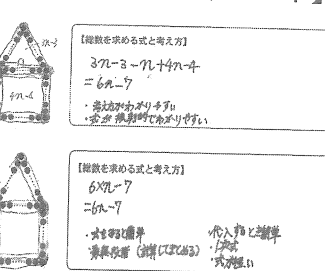 3n-3
n
4n-4
【総数を求める式と考え方】
3n-3-n+4n-4
=6n-7
・考え方がわかりやすい
・式が 規則的でわかりやすい
【総数を求める式と考え方】
6×n-7
=6n-7
・式をみると簡単
・代入すると簡単
・1次式
・式が短い